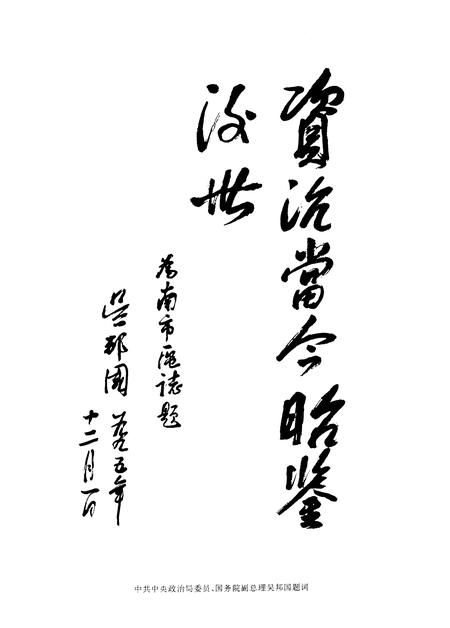 資治當今昭鉴
後世
为南市區誌題
吴邦國
一九九五年
十二月一日
中共中央政治局委员、国务院副总理吴邦国题词